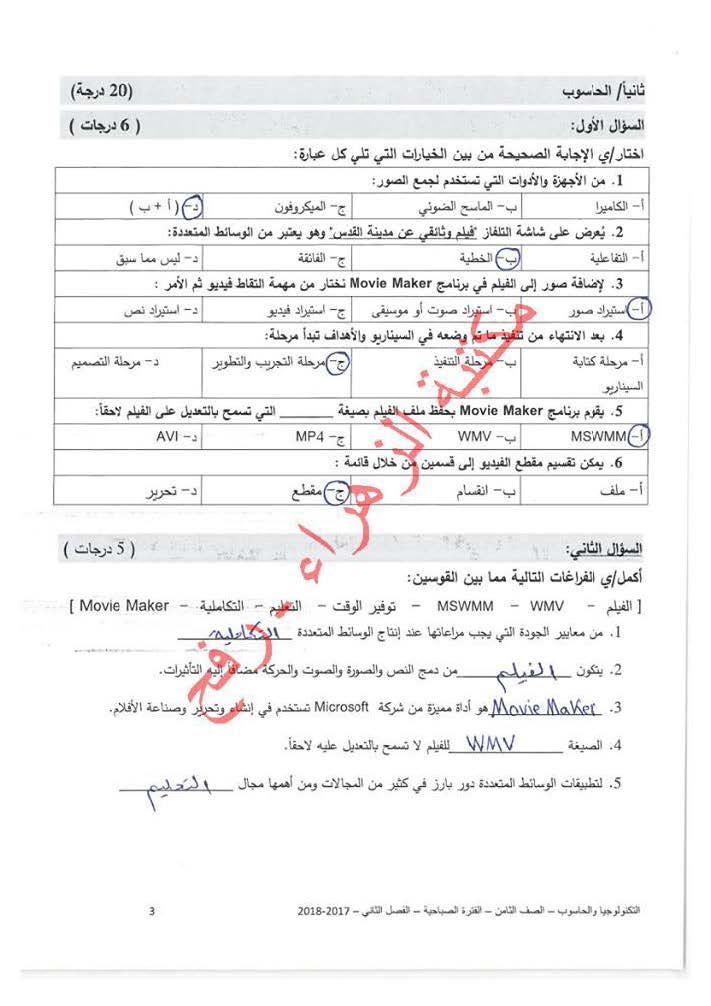 ثانياً/ الحاسوب (20 درجة)
السؤال الأول: ( 6 درجات )
اختار/ي الإجابة الصحيحة من بين الخيارات التي تلي كل عبارة:
1. من الأجهزة والأدوات التي تستخدم لجمع الصور:
أ- الكاميرا ب- الماسح الضوئي ج- الميكروفون د- ( أ + ب )
2. يُعرض على شاشة التلفاز "فيلم وثائقي عن مدينة القدس" وهو يعتبر من الوسائط المتعددة:
أ- التفاعلية ب- الخطية ج- الفائقة د- ليس مما سبق
3. لإضافة صور إلى الفيلم في برنامج Movie Maker نختار من مهمة التقاط فيديو ثم الأمر :
أ- استيراد صور ب- استيراد صوت أو موسيقى ج- استيراد فيديو د- استيراد نص
4. بعد الانتهاء من تنفيذ ما تم وضعه في السيناريو والأهداف تبدأ مرحلة:
أ- مرحلة كتابة السيناريو ب- مرحلة التنفيذ ج- مرحلة التجريب والتطوير د- مرحلة التصميم
5. يقوم برنامج Movie Maker بحفظ ملف الفيلم بصيغة ________ التي تسمح بالتعديل على الفيلم لاحقاً:
أ- MSWMM ب- WMV ج- MP4 د- AVI
6. يمكن تقسيم مقطع الفيديو إلى قسمين من خلال قائمة :
أ- ملف ب- انقسام ج- مقطع د- تحرير
السؤال الثاني: ( 5 درجات )
أكمل/ي الفراغات التالية مما بين القوسين:
[ الفيلم – MSWMM – WMV – توفير الوقت – التعليم – التكاملية – Movie Maker ]
1. من معايير الجودة التي يجب مراعاتها عند إنتاج الوسائط المتعددة التكاملية
2. يتكون الفيلم من دمج النص والصورة والصوت والحركة مضافاً إليه التأثيرات.
3. Movie Maker هو أداة مميزة من شركة Microsoft تستخدم في إنشاء وتحرير وصناعة الأفلام.
4. الصيغة WMV للفيلم لا تسمح بالتعديل عليه لاحقاً.
5. لتطبيقات الوسائط المتعددة دور بارز في كثير من المجالات ومن أهمها مجال التعليم
مكتبة الزهراء - رفح
التكنولوجيا والحاسوب – الصف الثامن – الفترة الصباحية – الفصل الثاني – 2017-2018 3